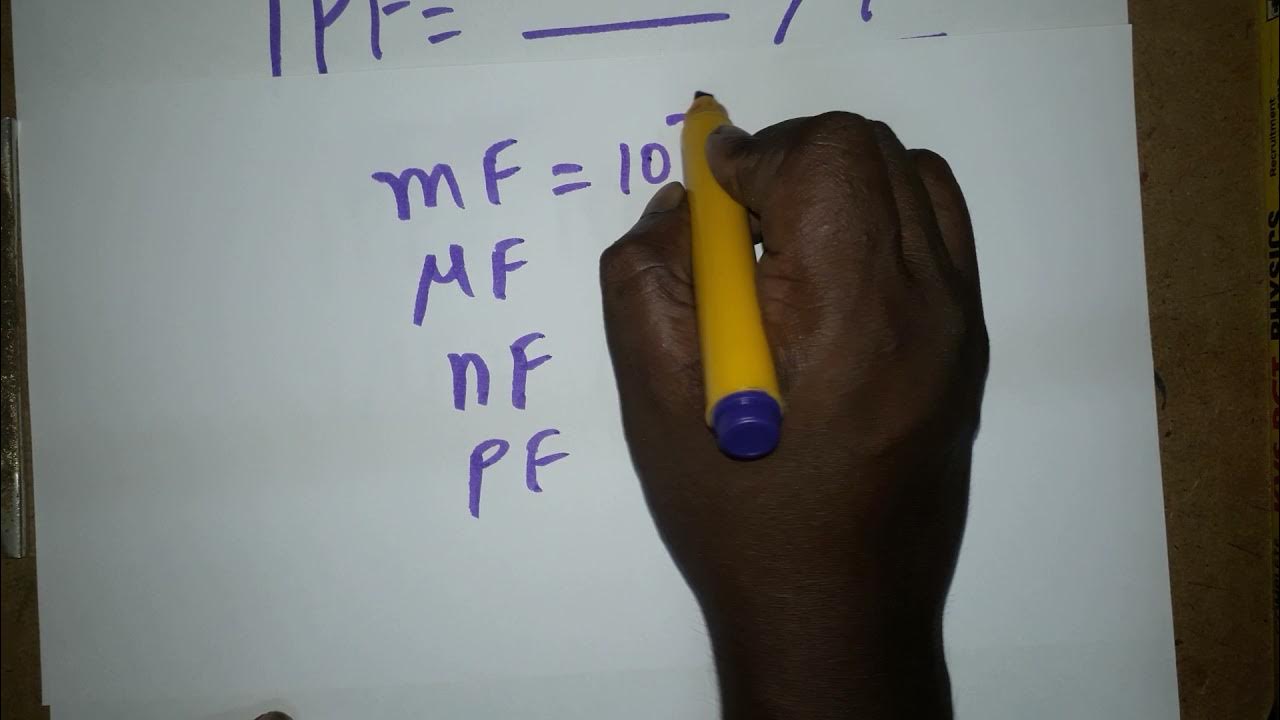 1PF= ___ / 
mF = 10⁻
µF
nF
PF
Recruitment
PHYSICS